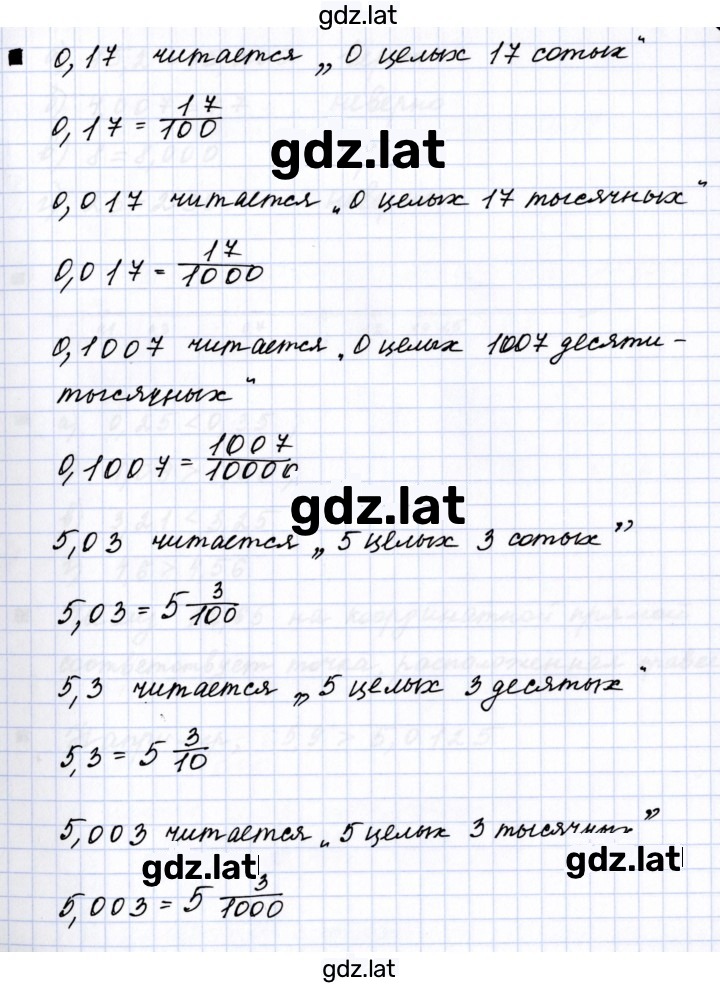 gdz.lat
0,17 читается „0 целых 17 сотых“
0,17 = 17/100
gdz.lat
0,017 читается „0 целых 17 тысячных“
0,017 = 17/1000
0,1007 читается „0 целых 1007 десяти-
тысячных“
0,1007 = 1007/10000
gdz.lat
5,03 читается „5 целых 3 сотых”
5,03 = 5 3/100
5,3 читается „5 целых 3 десятых“
5,3 = 5 3/10
5,003 читается „5 целых 3 тысячных”
gdz.lat
gdz.lat
5,003 = 5 3/1000
gdz.lat